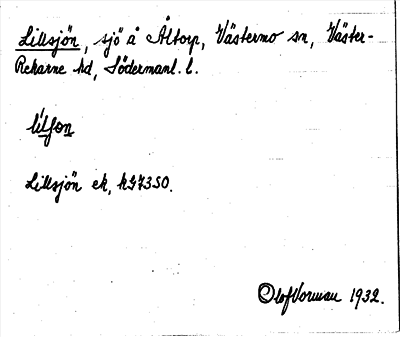 Lillsjön, sjö å Åltorp, Västermo sn, Väster-
Rekarne hd, Södermanl. l.
Lillsjön ek,
Olof Vorman 1932.